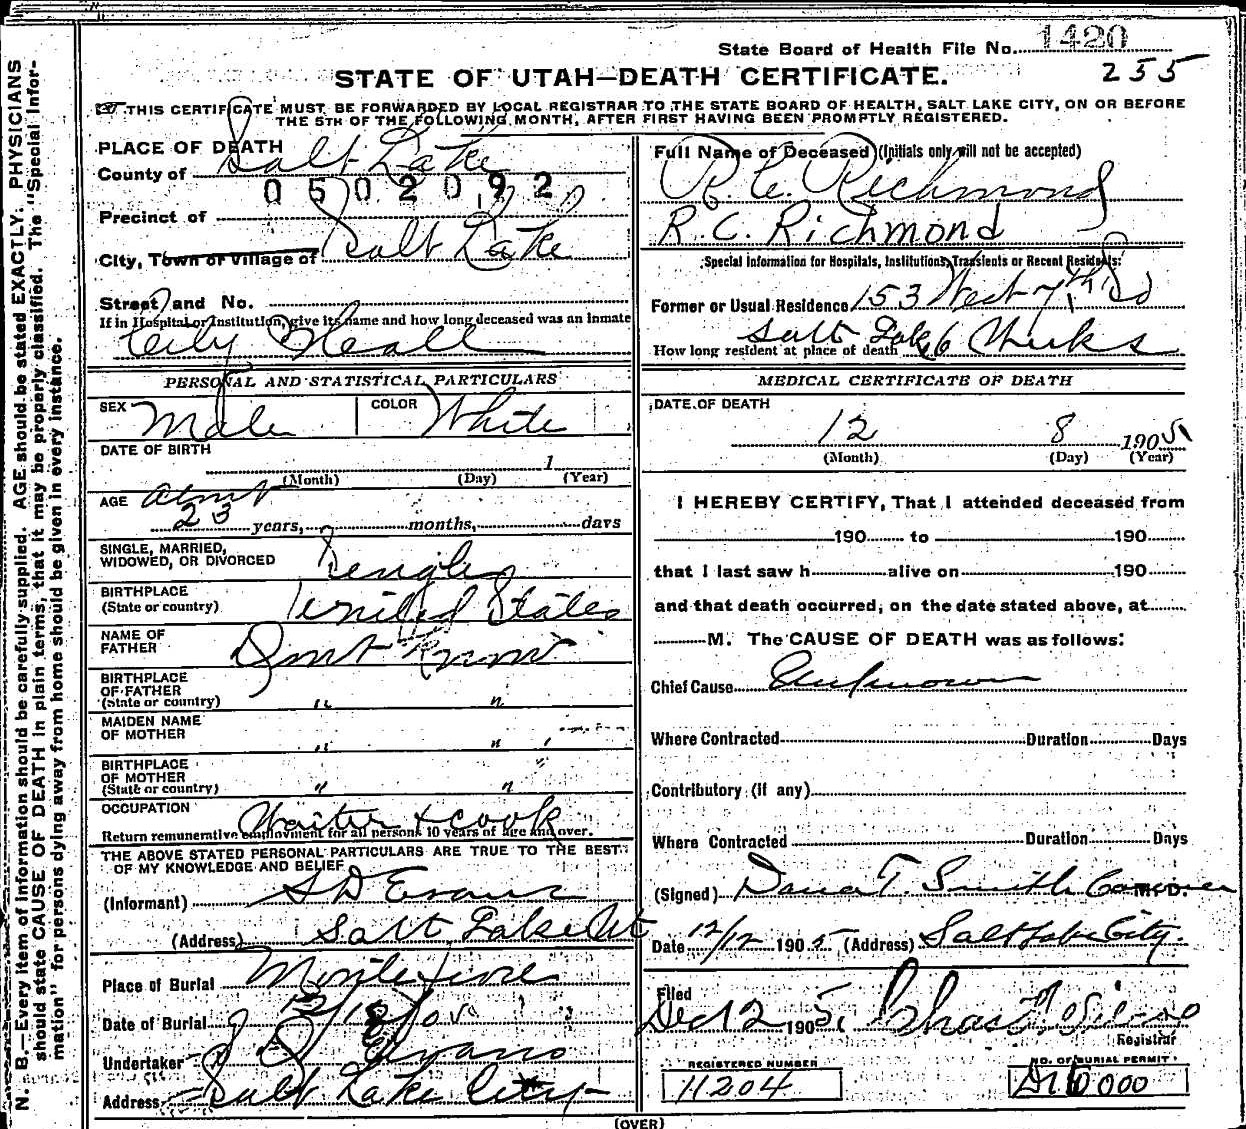 State Board of Health File No. 1420
255
STATE OF UTAH—DEATH CERTIFICATE.
THIS CERTIFICATE MUST BE FORWARDED BY LOCAL REGISTRAR TO THE STATE BOARD OF HEALTH, SALT LAKE CITY, ON OR BEFORE
THE 5TH OF THE FOLLOWING MONTH, AFTER FIRST HAVING BEEN PROMPTLY REGISTERED.
PLACE OF DEATH
County of Salt Lake
0502092
Precinct of
City, Town or Village of Salt Lake
Street and No.
If in Hospital or Institution, give its name and how long deceased was an inmate
City
Full Name of Deceased (Initials only will not be accepted)
R. C. Richmond
R.C. Richmond
Special Information for Hospitals, Institutions, Transients or Recent Residents:
Former or Usual Residence 153 West
Salt Lake
How long resident at place of death 6
PERSONAL AND STATISTICAL PARTICULARS
SEX Male COLOR White
DATE OF BIRTH
1
(Month) (Day) (Year)
AGE about
23 years, months, days
SINGLE, MARRIED,
WIDOWED, OR DIVORCED Single
BIRTHPLACE
(State or country) United States
NAME OF
FATHER Dont Know
BIRTHPLACE
OF FATHER
(State or country) " "
MAIDEN NAME
OF MOTHER " "
BIRTHPLACE
OF MOTHER
(State or country) " "
OCCUPATION Waiter & cook
Return remunerative employment for all persons 10 years of age and over.
THE ABOVE STATED PERSONAL PARTICULARS ARE TRUE TO THE BEST
OF MY KNOWLEDGE AND BELIEF
(Informant) S D Evans
(Address) Salt Lake Ut
Place of Burial Montefiore
Date of Burial 12/18/05
Undertaker S D Evans
Address Salt Lake City
MEDICAL CERTIFICATE OF DEATH
DATE OF DEATH
12 8 1905
(Month) (Day) (Year)
I HEREBY CERTIFY, That I attended deceased from
190 to 190
that I last saw h alive on 190
and that death occurred, on the date stated above, at
M. The CAUSE OF DEATH was as follows:
Chief Cause Unknown
Where Contracted Duration Days
Contributory (if any)
Where Contracted Duration Days
(Signed) Dana T. Smith Coroner M.D.
Date 12/12 1905 (Address) Salt Lake City.
Filed
Dec 12 1905
Registrar
REGISTERED NUMBER
11204
NO. OF BURIAL PERMIT
(OVER)
N. B.—Every item of information should be carefully supplied. AGE should be stated EXACTLY. PHYSICIANS
should state CAUSE OF DEATH in plain terms, that it may be properly classified. The "Special Infor-
mation" for persons dying away from home should be given in every instance.